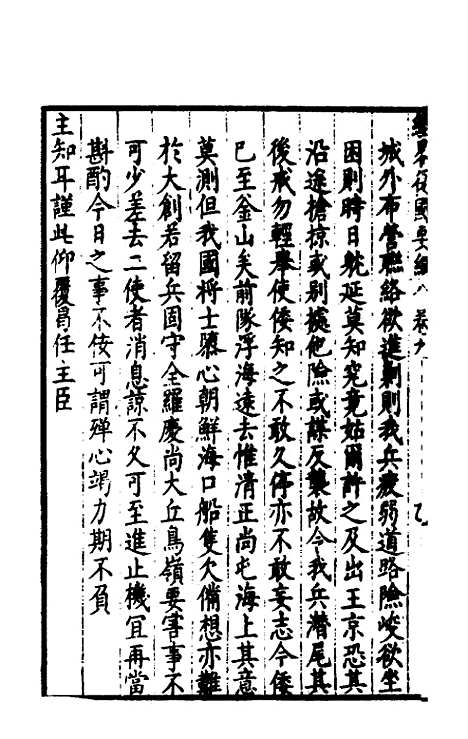 經畧復國要編 卷九
城外布營聯絡欲進剿則我兵疲弱道路險峻欲坐
困則時日躭延莫知究竟姑爾許之及出王京恐其
沿途搶掠或别據他險或謀反襲故令我兵潛尾其
後戒勿輕舉使倭知之不敢久停亦不敢妄志今倭
已至釡山矣前隊浮海遠去惟清正尚屯海上其意
莫測但我國將士雖心朝鮮海口船隻欠備想亦難
於大創若留兵固守全羅慶尚大丘鳥嶺要害事不
可少差去二使者消息諒不久可至進止機宜再當
斟酌今日之事不佞可謂殫心竭力期不負
主知耳謹此仰覆曷任主臣